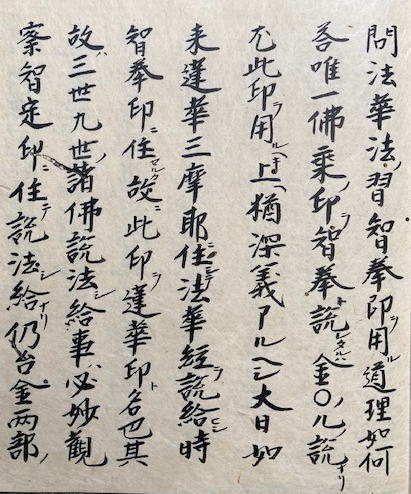 問法華法ノ習智拳印用ル道理如何
答唯一佛乗ノ印ヲ智拳ト説レタルハ金〇ル説ナリ
尤此印ヲ用ルヘキ上ハ猶深義アルヘシ大日如
来蓮華三摩耶ニ住シテ法華経ヲ説給ヒシ時
智拳印ニ住故ニ此印ヲ蓮華印ト名也其
故ハ三世九世ノ諸佛説法シ給事ハ必妙観
察智定印ニ住テ説法シ給ナリ仍台金両部ノ